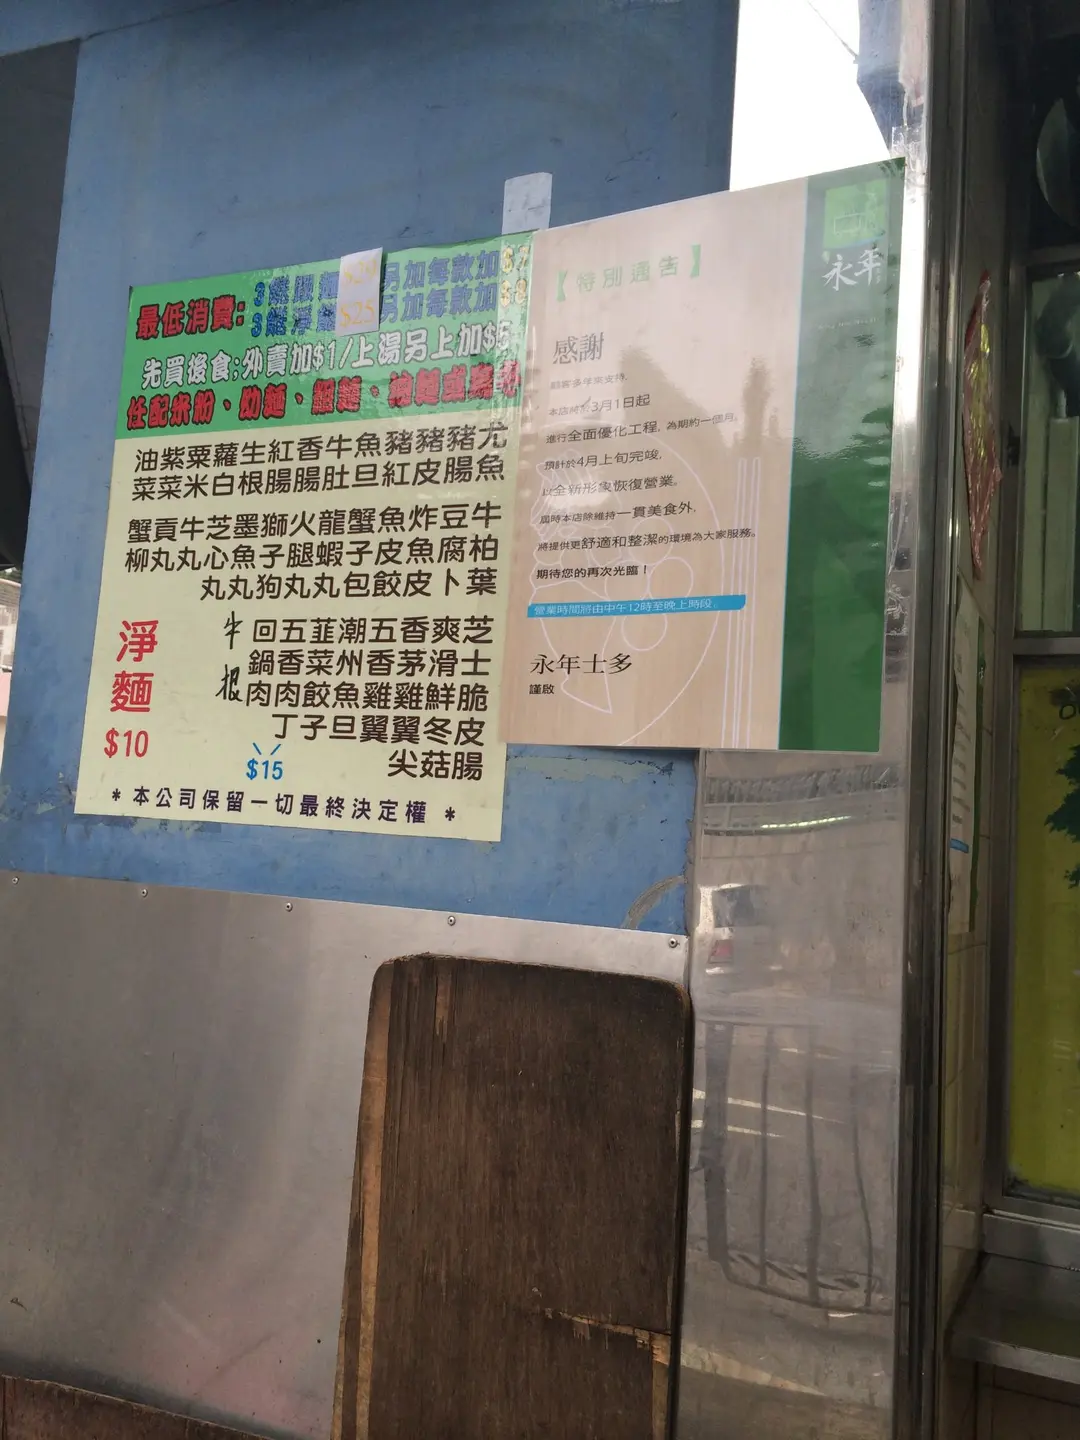 最低消費:
$24 另加每款加$7
$25 另加每款加$8
先買後食;外賣加$1/上湯另上加$5
任配米粉、幼麵、
尤魚
豬腸
豬皮
豬紅
魚旦
牛肚
香腸
紅腸
生根
蘿白
粟米
紫菜
油菜
牛柏葉
豆腐卜
炸魚皮
魚皮餃
蟹子包
龍蝦丸
火腿丸
獅子狗
墨魚丸
芝心丸
牛丸
貢丸
蟹柳
芝士脆皮腸
爽滑鮮冬菇
香茅雞翼尖
五香雞翼
潮州魚旦
韮菜餃子
五香肉丁
回鍋肉
牛根
$15
淨麵
$10
* 本公司保留一切最終決定權 *
永年
【特別通告】
感謝
顧客多年來支持,
本店將於3月1日起
進行全面優化工程, 為期約一個月,
預計於4月上旬完竣,
以全新形象恢復營業。
屆時本店除維持一貫美食外,
將提供更舒適和整潔的環境為大家服務。
期待您的再次光臨！
營業時間將由中午12時至晚上時段。
永年士多
謹啟